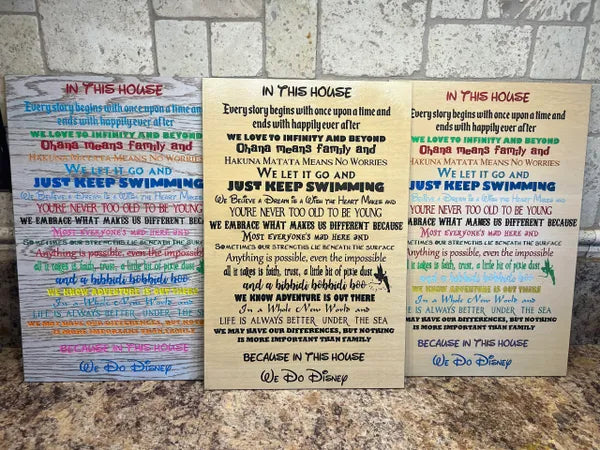 IN THIS HOUSE
Every story begins with once upon a time and
ends with happily ever after
WE LOVE TO INFINITY AND BEYOND
Ohana means family and
HAKUNA MATATA MEANS NO WORRIES
WE LET IT GO AND
JUST KEEP SWIMMING
We Believe a Dream is a Wish the Heart Makes and
YOU'RE NEVER TOO OLD TO BE YOUNG
WE EMBRACE WHAT MAKES US DIFFERENT BECAUSE
MOST EVERYONE'S MAD HERE AND
SOMETIMES OUR STRENGTHS LIE BENEATH THE SURFACE
Anything is possible, even the impossible
all it takes is faith, trust, a little bit of pixie dust
and a bibbidi bobbidi boo
WE KNOW ADVENTURE IS OUT THERE
In a Whole New World and
LIFE IS ALWAYS BETTER UNDER THE SEA
WE MAY HAVE OUR DIFFERENCES, BUT NOTHING
IS MORE IMPORTANT THAN FAMILY
BECAUSE IN THIS HOUSE
We Do Disney
IN THIS HOUSE
Every story begins with once upon a time and
ends with happily ever after
WE LOVE TO INFINITY AND BEYOND
Ohana means family and
HAKUNA MATATA MEANS NO WORRIES
WE LET IT GO AND
JUST KEEP SWIMMING
We Believe a Dream is a Wish the Heart Makes and
YOU'RE NEVER TOO OLD TO BE YOUNG
WE EMBRACE WHAT MAKES US DIFFERENT BECAUSE
MOST EVERYONE'S MAD HERE AND
SOMETIMES OUR STRENGTHS LIE BENEATH THE SURFACE
Anything is possible, even the impossible
all it takes is faith, trust, a little bit of pixie dust
and a bibbidi bobbidi boo
WE KNOW ADVENTURE IS OUT THERE
In a Whole New World and
LIFE IS ALWAYS BETTER UNDER THE SEA
WE MAY HAVE OUR DIFFERENCES, BUT NOTHING
IS MORE IMPORTANT THAN FAMILY
BECAUSE IN THIS HOUSE
We Do Disney
IN THIS HOUSE
Every story begins with once upon a time and
ends with happily ever after
WE LOVE TO INFINITY AND BEYOND
Ohana means family and
HAKUNA MATATA MEANS NO WORRIES
WE LET IT GO AND
JUST KEEP SWIMMING
Believe a Dream is a Wish the Heart Makes and
YOU'RE NEVER TOO OLD TO BE YOUNG
EMBRACE WHAT MAKES US DIFFERENT BECAUSE
MOST EVERYONE'S MAD HERE AND
OUR STRENGTHS LIE BENEATH THE SURFACE
Anything is possible, even the impossible
all it takes is faith, trust, a little bit of pixie dust
and a bibbidi bobbidi boo
WE KNOW ADVENTURE IS OUT THERE
In a Whole New World and
LIFE IS ALWAYS BETTER UNDER THE SEA
WE MAY HAVE OUR DIFFERENCES, BUT NOTHING
IS MORE IMPORTANT THAN FAMILY
BECAUSE IN THIS HOUSE
We Do Disney